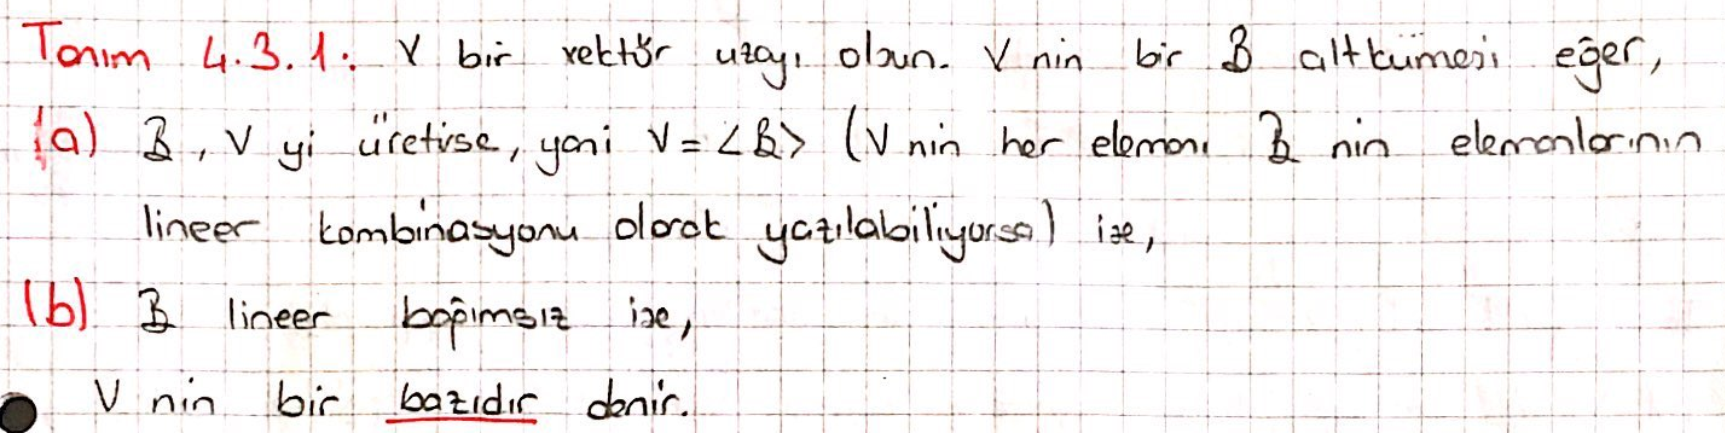 Tanım 4.3.1: V bir vektör uzayı olsun. V nin bir B altkümesi eğer,
(a) B, V yi üretirse, yani V = <B> (V nin her elemanı B nin elemanlarının
lineer kombinasyonu olarak yazılabiliyorsa) ise,
(b) B lineer bağımsız ise,
V nin bir bazıdır denir.